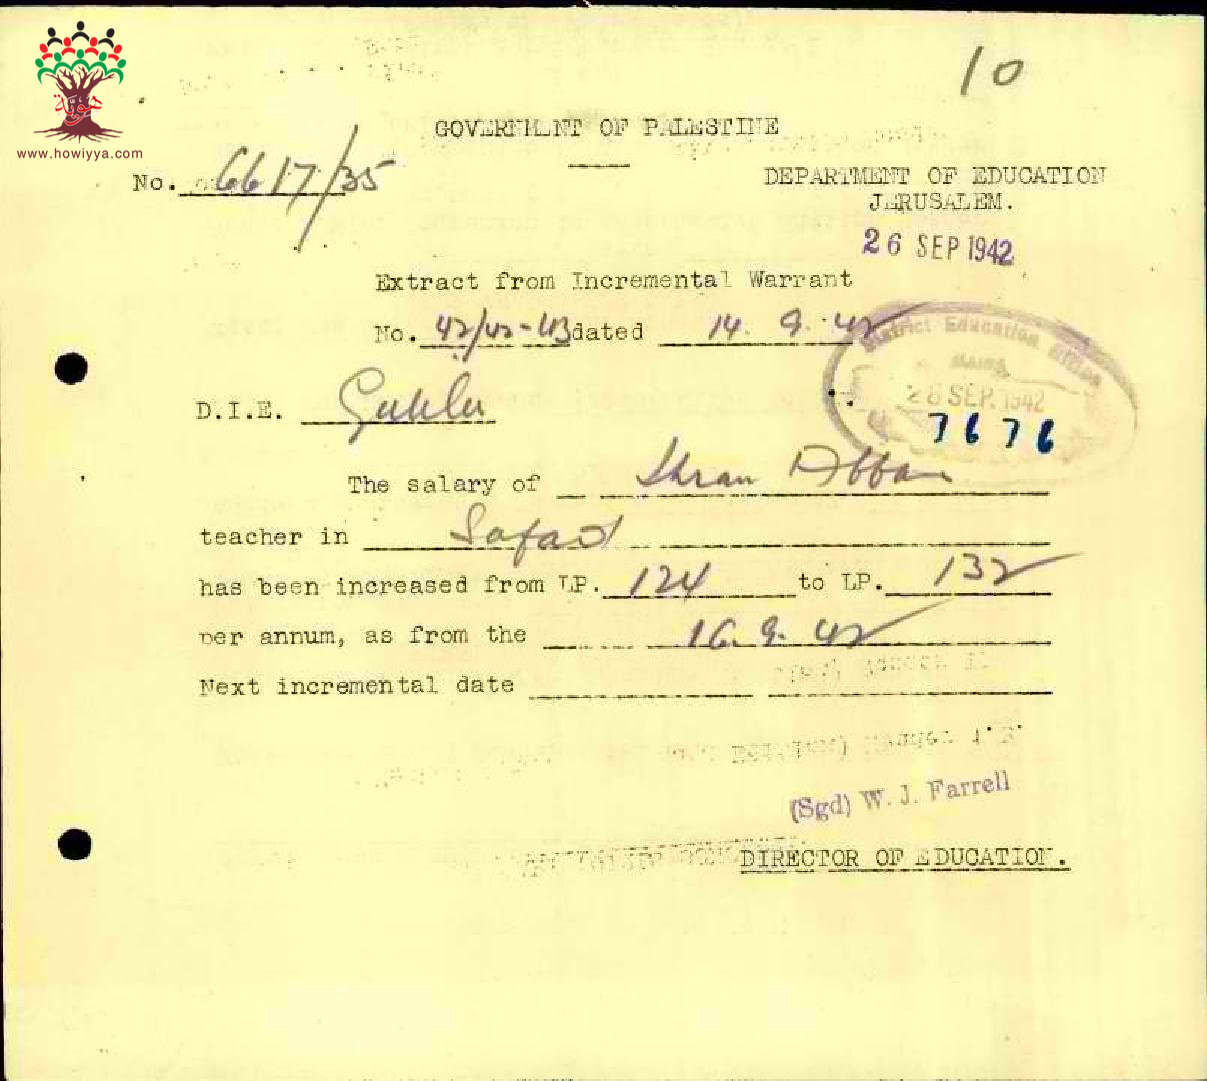 10
هوية
www.howiyya.com
GOVERNMENT OF PALESTINE
No. 6617/35
DEPARTMENT OF EDUCATION
JERUSALEM.
26 SEP 1942
Extract from Incremental Warrant
No. 42/42-43 dated 14. 9. 42
District Education Office
28 SEP. 1942
7676
D.I.E. Galilee
The salary of Ihsan Abbas
teacher in Safad
has been increased from LP. 124 to LP. 132
per annum, as from the 16. 9. 42
Next incremental date
(Sgd) W. J. Farrell
DIRECTOR OF EDUCATION.